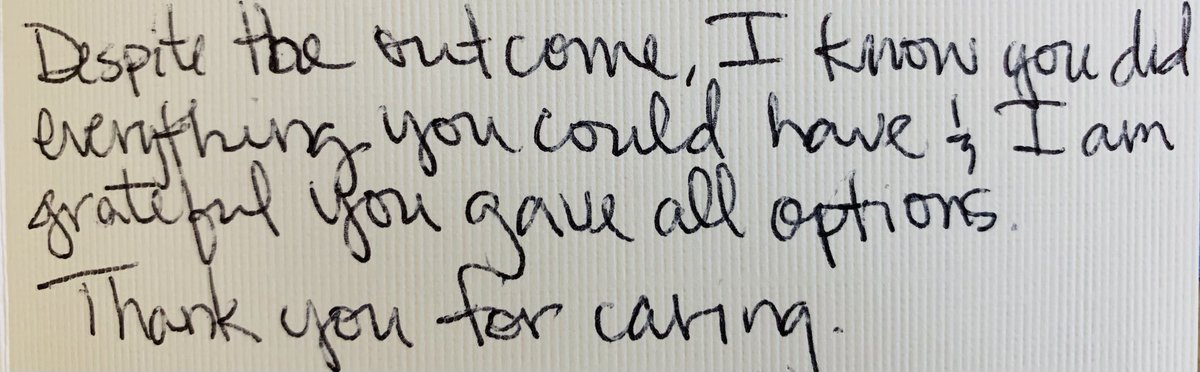 Despite the outcome, I know you did
everything you could have & I am
grateful you gave all options.
Thank you for caring.